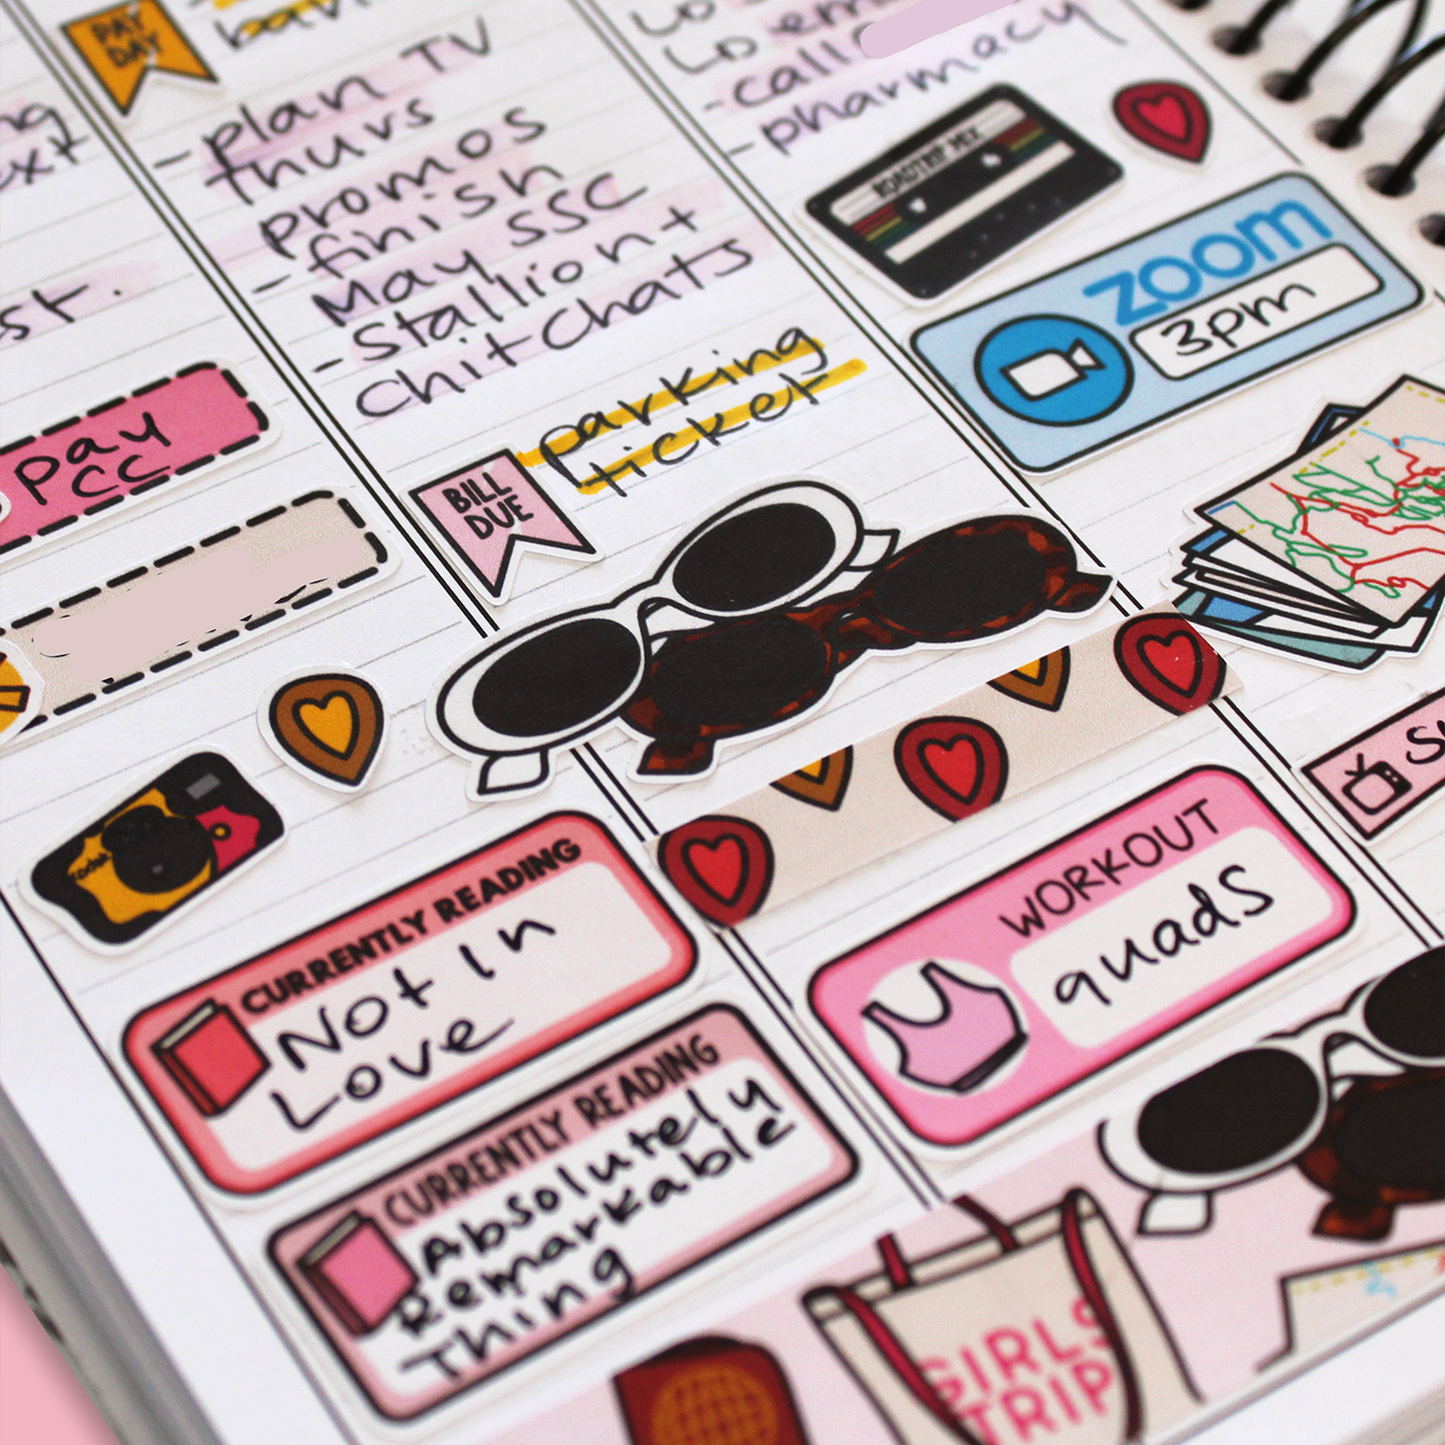 PAY
DAY
- plan TV
thurs
promos
- finish
May SSC
- Stallion +
chitchats
parking
ticket
BILL
DUE
- call
- pharmacy
ROADTRIP MIX
zoom
3pm
pay
CC
CURRENTLY READING
Not In
Love
CURRENTLY READING
Absolutely
Remarkable
Thing
WORKOUT
quads
GIRLS
TRIP